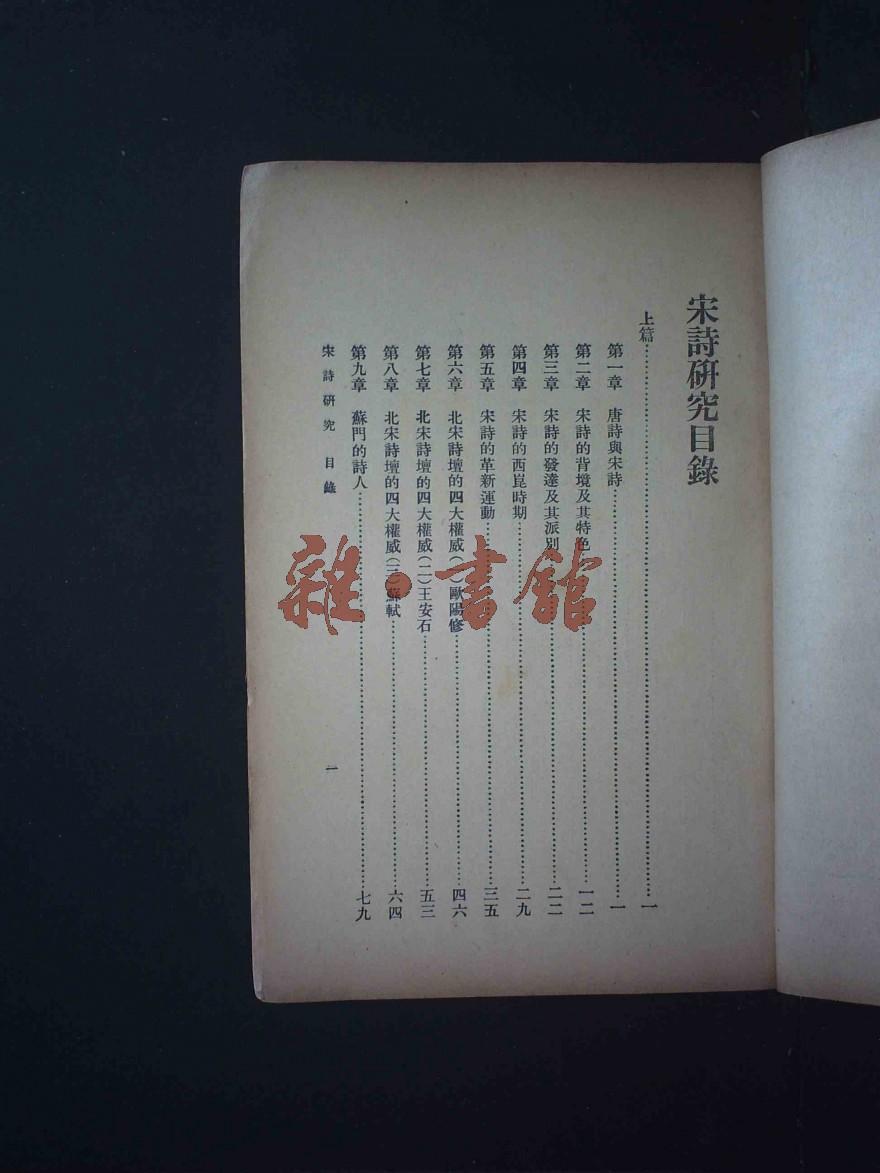 宋詩研究目錄
上篇……一
第一章 唐詩與宋詩……一
第二章 宋詩的背境及其特色……一二
第三章 宋詩的發達及其派別……二二
第四章 宋詩的西崑時期……二九
第五章 宋詩的革新運動……三五
第六章 北宋詩壇的四大權威(一)歐陽修……四六
第七章 北宋詩壇的四大權威(二)王安石……五三
第八章 北宋詩壇的四大權威(三)蘇軾……六四
第九章 蘇門的詩人……七九
宋詩研究 目錄 一
雜·書館